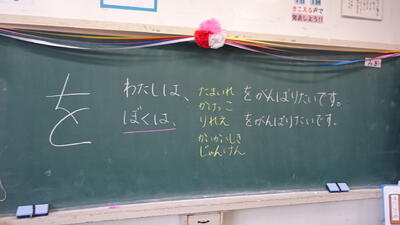 きこえる声で
発表しよう!!
を
わたしは、
ぼくは、
たまいれ
かけっこ
りれえ
かいかいしき
じゃんけん
をがんばりたいです。
をがんばりたいです。